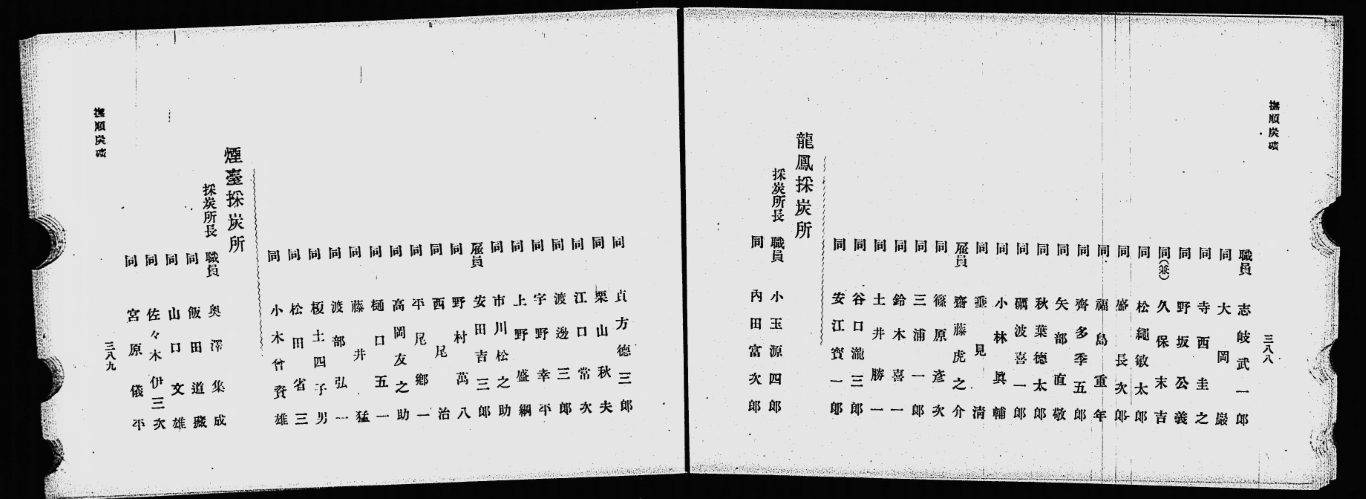 撫順炭礦
三八八
職員 志岐武一郎
同 大岡巖
同 寺西圭之
同 野坂公義
同(兼) 久保末吉
同 松繩敏太郎
同 盛長次郎
同 福島重年
同 齊多季五郎
同 矢部直敬
同 秋葉德太郎
同 礪波喜一郎
同 小林眞輔
同 垂見清
雇員 齋藤虎之介
同 篠原彥次
同 三浦一郎
同 鈴木喜一
同 土井勝一
同 谷口瀧三郎
同 安江寳一郎
龍鳳採炭所
採炭所長 職員 小玉源四郎
同 內田富次郎
同 貞方德三郎
同 栗山秋夫
同 江口常次
同 渡邊三郎
同 宇野幸平
同 上野盛綱
同 市川松之助
雇員 安田吉三郎
同 野村萬八
同 西尾治
同 平尾鄕一
同 高岡友之助
同 樋口五一
同 藤井猛
同 渡部弘一
同 榎土四子男
同 松田省三
同 小木曾資雄
煙臺採炭所
採炭所長 職員 奧澤集成
同 飯田道藏
同 山口文雄
同 佐々木伊三次
同 宮原儀平
撫順炭礦
三八九